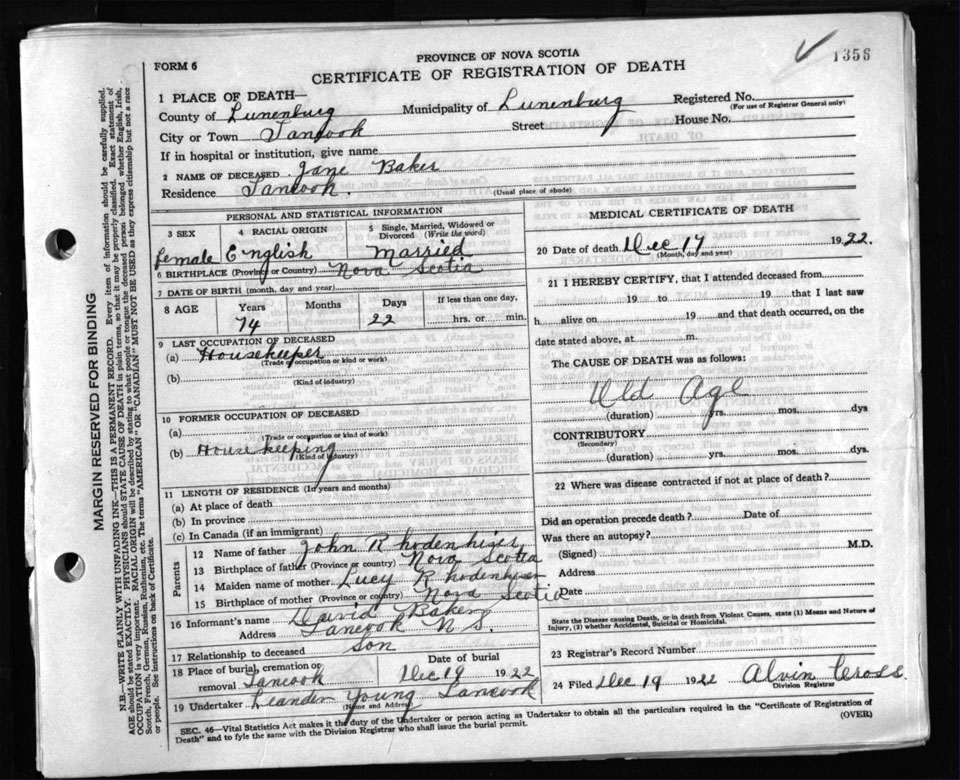 1356
FORM 6
PROVINCE OF NOVA SCOTIA
CERTIFICATE OF REGISTRATION OF DEATH
1 PLACE OF DEATH—
County of Lunenburg Municipality of Lunenburg Registered No.
(For use of Registrar General only)
City or Town Tancook Street House No.
If in hospital or institution, give name
2 NAME OF DECEASED Jane Baker
Residence Tancook (Usual place of abode)
PERSONAL AND STATISTICAL INFORMATION
3 SEX 4 RACIAL ORIGIN 5 Single, Married, Widowed or
Divorced (Write the word)
Female English Married
6 BIRTHPLACE (Province or Country) Nova Scotia
7 DATE OF BIRTH (month, day and year)
8 AGE Years Months Days If less than one day,
74 22 hrs. or min.
9 LAST OCCUPATION OF DECEASED
(a) Housekeeper
(Trade or occupation or kind or work)
(b)
(Kind of industry)
10 FORMER OCCUPATION OF DECEASED
(a)
(Trade or occupation or kind of work)
(b) Housekeeping
(Kind of industry)
11 LENGTH OF RESIDENCE (In years and months)
(a) At place of death
(b) In province
(c) In Canada (if an immigrant)
Parents
12 Name of father John Rhodenhiser
13 Birthplace of father (Province or country) Nova Scotia
14 Maiden name of mother Lucy Rhodenhiser
15 Birthplace of mother (Province or country) Nova Scotia
16 Informant's name David Baker
Address Tancook N S.
17 Relationship to deceased son
18 Place of burial, cremation or Date of burial
removal Tancook Dec 19 1922
19 Undertaker Leander Young Tancook
(Name and Address)
MEDICAL CERTIFICATE OF DEATH
20 Date of death Dec 17 1922.
(Month, day and year)
21 I HEREBY CERTIFY, that I attended deceased from
19 to 19 that I last saw
h alive on 19 and that death occurred, on the
date stated above, at m.
The CAUSE OF DEATH was as follows:
Old Age
(duration) yrs. mos. dys
CONTRIBUTORY
(Secondary)
(duration) yrs. mos. dys
22 Where was disease contracted if not at place of death?
Did an operation precede death? Date of
Was there an autopsy?
(Signed) M.D.
Address
Date
State the Disease causing Death, or in death from Violent Causes, state (1) Means and Nature of
Injury, (2) whether Accidental, Suicidal or Homicidal.
23 Registrar's Record Number
24 Filed Dec 19 1922 Alvin Cross.
Division Registrar
SEC. 46—Vital Statistics Act makes it the duty of the Undertaker or person acting as Undertaker to obtain all the particulars required in the "Certificate of Registration of
Death" and to fyle the same with the Division Registrar who shall issue the burial permit. (OVER)
MARGIN RESERVED FOR BINDING
N.B.—WRITE PLAINLY WITH UNFADING INK—THIS IS A PERMANENT RECORD. Every item of information should be carefully supplied.
AGE should be stated EXACTLY. PHYSICIANS should STATE CAUSE OF DEATH in plain terms, so that it may be properly classified. Exact statement of
OCCUPATION is very important. RACIAL ORIGIN will be described by stating to what people or tongue the deceased person belonged whether English, Irish,
Scotch, French, German, Russian, Ruthenian, etc. The terms "AMERICAN" OR "CANADIAN" MUST NOT BE USED as they express citizenship but not a race
or people. See instructions on back of Certificate.